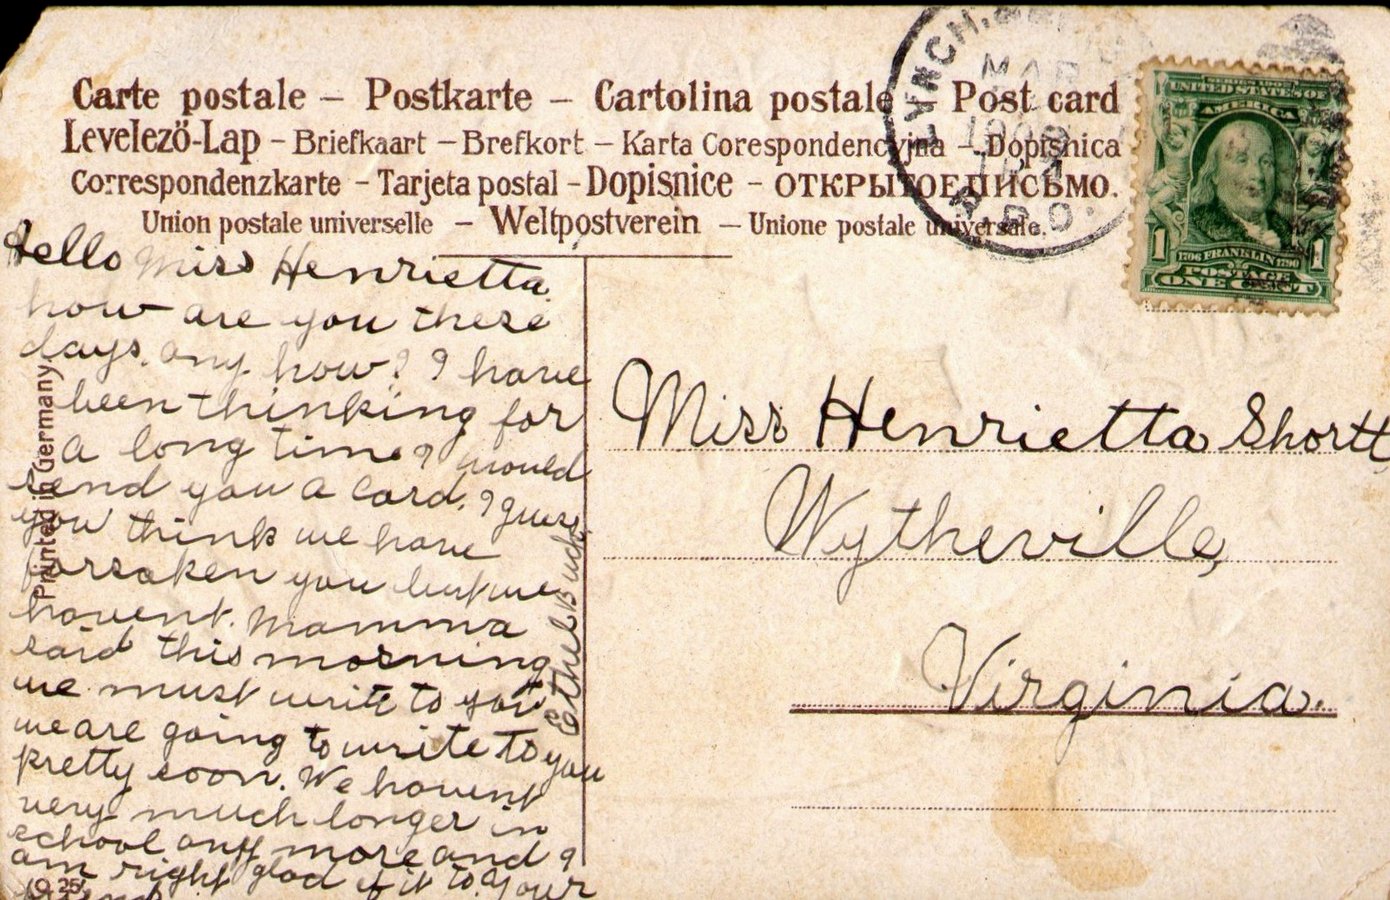 Carte postale – Postkarte – Cartolina postale – Post card
Levelező-Lap – Briefkaart – Brefkort – Karta Corespondencyjna – Dopisnica
Correspondenzkarte – Tarjeta postal – Dopisnice – ОТКРЫТОЕ ПИСЬМО.
Union postale universelle – Weltpostverein – Unione postale universale.
LYNCH.
MAR
R.P.O.
UNITED STATES OF
AMERICA
1 1706 FRANKLIN 1790 1
POSTAGE
ONE CENT
Hello Miss Henrietta
how are you these
days. any how? I have
been thinking for
a long time I would
send you a card. I guess
you think we have
forsaken you but we
havent. Mamma
said this morning
we must write to you
we are going to write to you
pretty soon. We havent
very much longer in
school any more and I
am right glad of it too. Your
friend
Ethel Buck
Miss Henrietta Shortt,
Wytheville,
Virginia.
Printed in Germany.